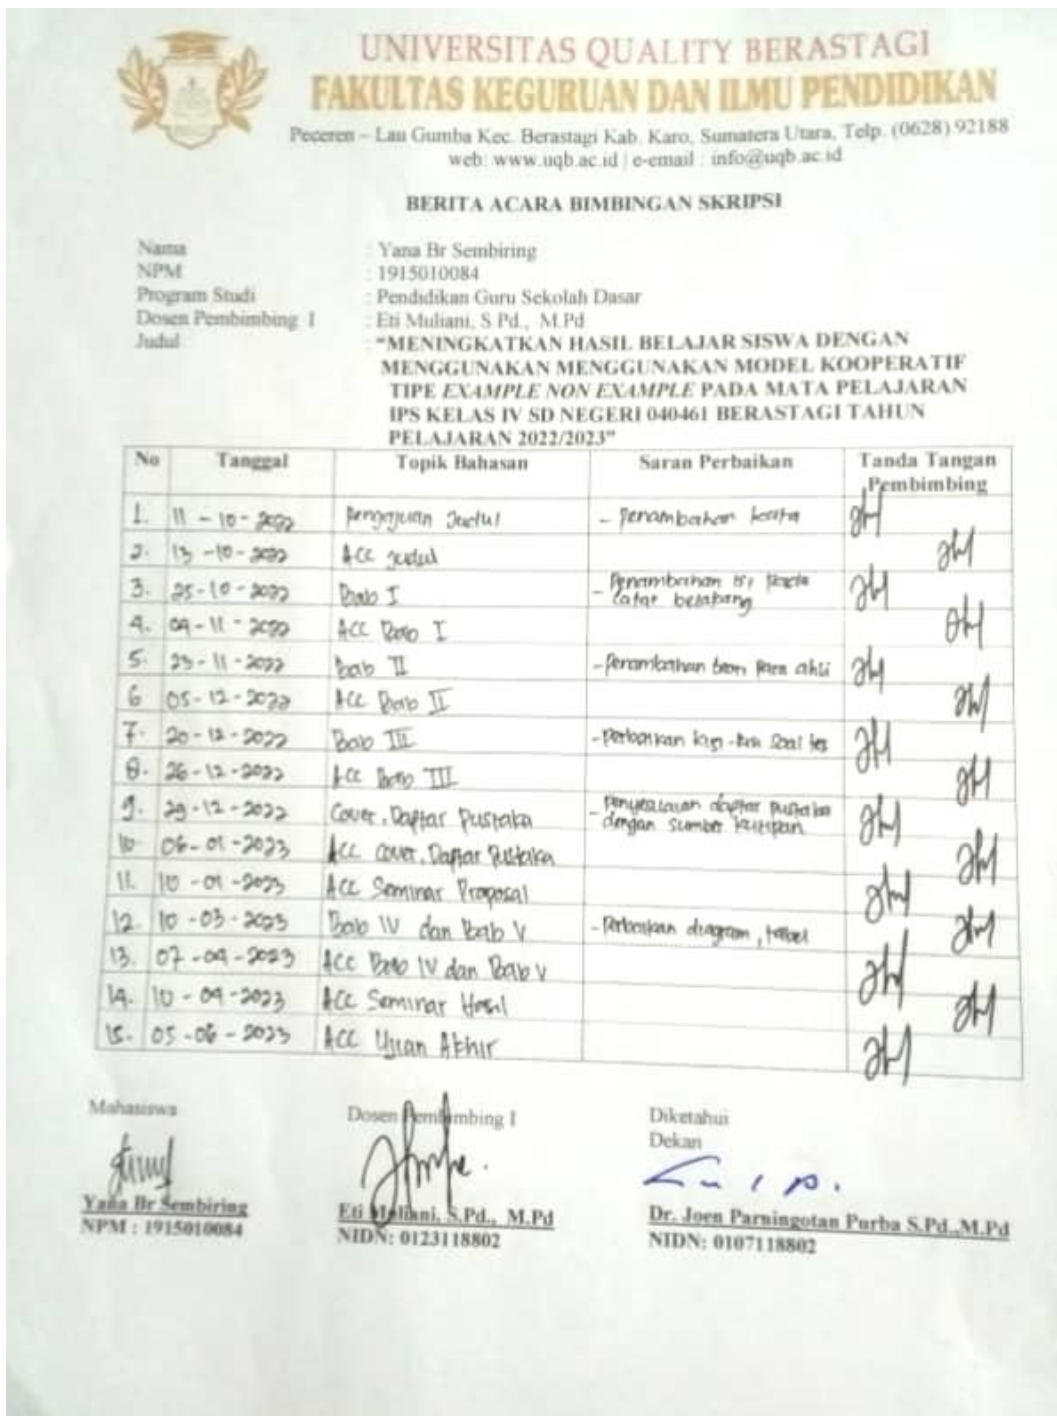 UNIVERSITAS QUALITY BERASTAGI
FAKULTAS KEGURUAN DAN ILMU PENDIDIKAN
Peceren – Lau Gumba Kec. Berastagi Kab. Karo, Sumatera Utara, Telp. (0628) 92188
web: www.uqb.ac.id | e-email : info@uqb.ac.id
BERITA ACARA BIMBINGAN SKRIPSI
Nama : Yana Br Sembiring
NPM : 1915010084
Program Studi : Pendidikan Guru Sekolah Dasar
Dosen Pembimbing I : Eti Muliani, S.Pd., M.Pd
Judul : "MENINGKATKAN HASIL BELAJAR SISWA DENGAN
MENGGUNAKAN MENGGUNAKAN MODEL KOOPERATIF
TIPE EXAMPLE NON EXAMPLE PADA MATA PELAJARAN
IPS KELAS IV SD NEGERI 040461 BERASTAGI TAHUN
PELAJARAN 2022/2023"
No Tanggal Topik Bahasan Saran Perbaikan Tanda Tangan
Pembimbing
1. 11 - 10 - 2022 Pengajuan Judul - Penambahan
2. 13 - 10 - 2022 ACC Judul
3. 25 - 10 - 2022 Bab I - Penambahan isi pada
latar belakang
4. 09 - 11 - 2022 ACC Bab I
5. 23 - 11 - 2022 Bab II - Penambahan para ahli
6 05 - 12 - 2022 ACC Bab II
7. 20 - 12 - 2022 Bab III - Perbaikan kisi-kisi soal tes
8. 26 - 12 - 2022 ACC Bab III
9. 29 - 12 - 2022 Cover, Daftar Pustaka - Penyesuaian daftar pustaka
dengan sumber kutipan
10. 06 - 01 - 2023 ACC cover, Daftar Pustaka
11. 10 - 01 - 2023 ACC Seminar Proposal
12. 10 - 03 - 2023 Bab IV dan Bab V - Perbaikan diagram, tabel
13. 07 - 04 - 2023 ACC Bab IV dan Bab V
14. 10 - 04 - 2023 ACC Seminar Hasil
15. 05 - 06 - 2023 ACC Ujian Akhir
Mahasiswa Dosen Pembimbing I Diketahui
Dekan
Yana Br Sembiring Eti Muliani, S.Pd., M.Pd Dr. Joen Parningotan Purba S.Pd.,M.Pd
NPM : 1915010084 NIDN: 0123118802 NIDN: 0107118802